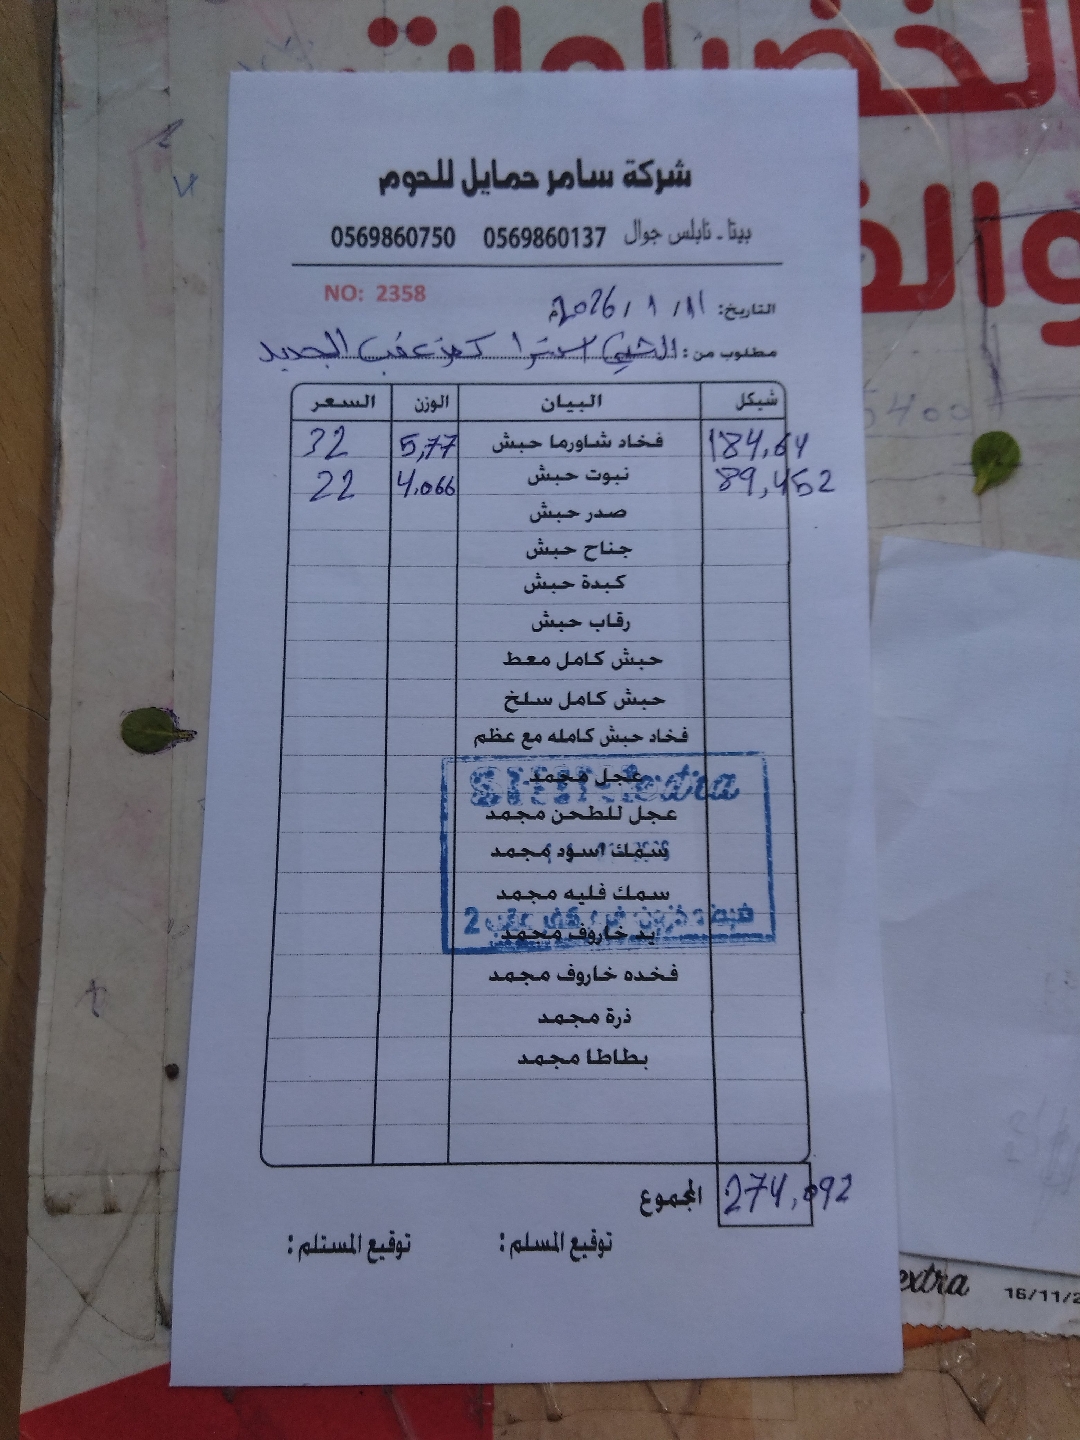 الخضراوات
والف
شركة سامر حمايل للحوم
بيتا - نابلس جوال 0569860137 0569860750
NO: 2358
التاريخ: 11 / 1 / 2026م
مطلوب من: الشني اكسترا كفر عقب الجديد
شيكل البيان الوزن السعر
184,64 فخاد شاورما حبش 5,77 32
89,452 نبوت حبش 4.066 22
صدر حبش
جناح حبش
كبدة حبش
رقاب حبش
حبش كامل معط
حبش كامل سلخ
فخاد حبش كامله مع عظم
عجل مجمد
عجل للطحن مجمد
سمك اسود مجمد
سمك فليه مجمد
يد خاروف مجمد
فخده خاروف مجمد
ذرة مجمد
بطاطا مجمد
extra
2
المجموع 274,092
توقيع المسلم : توقيع المستلم :
extra 16/11/2
5400